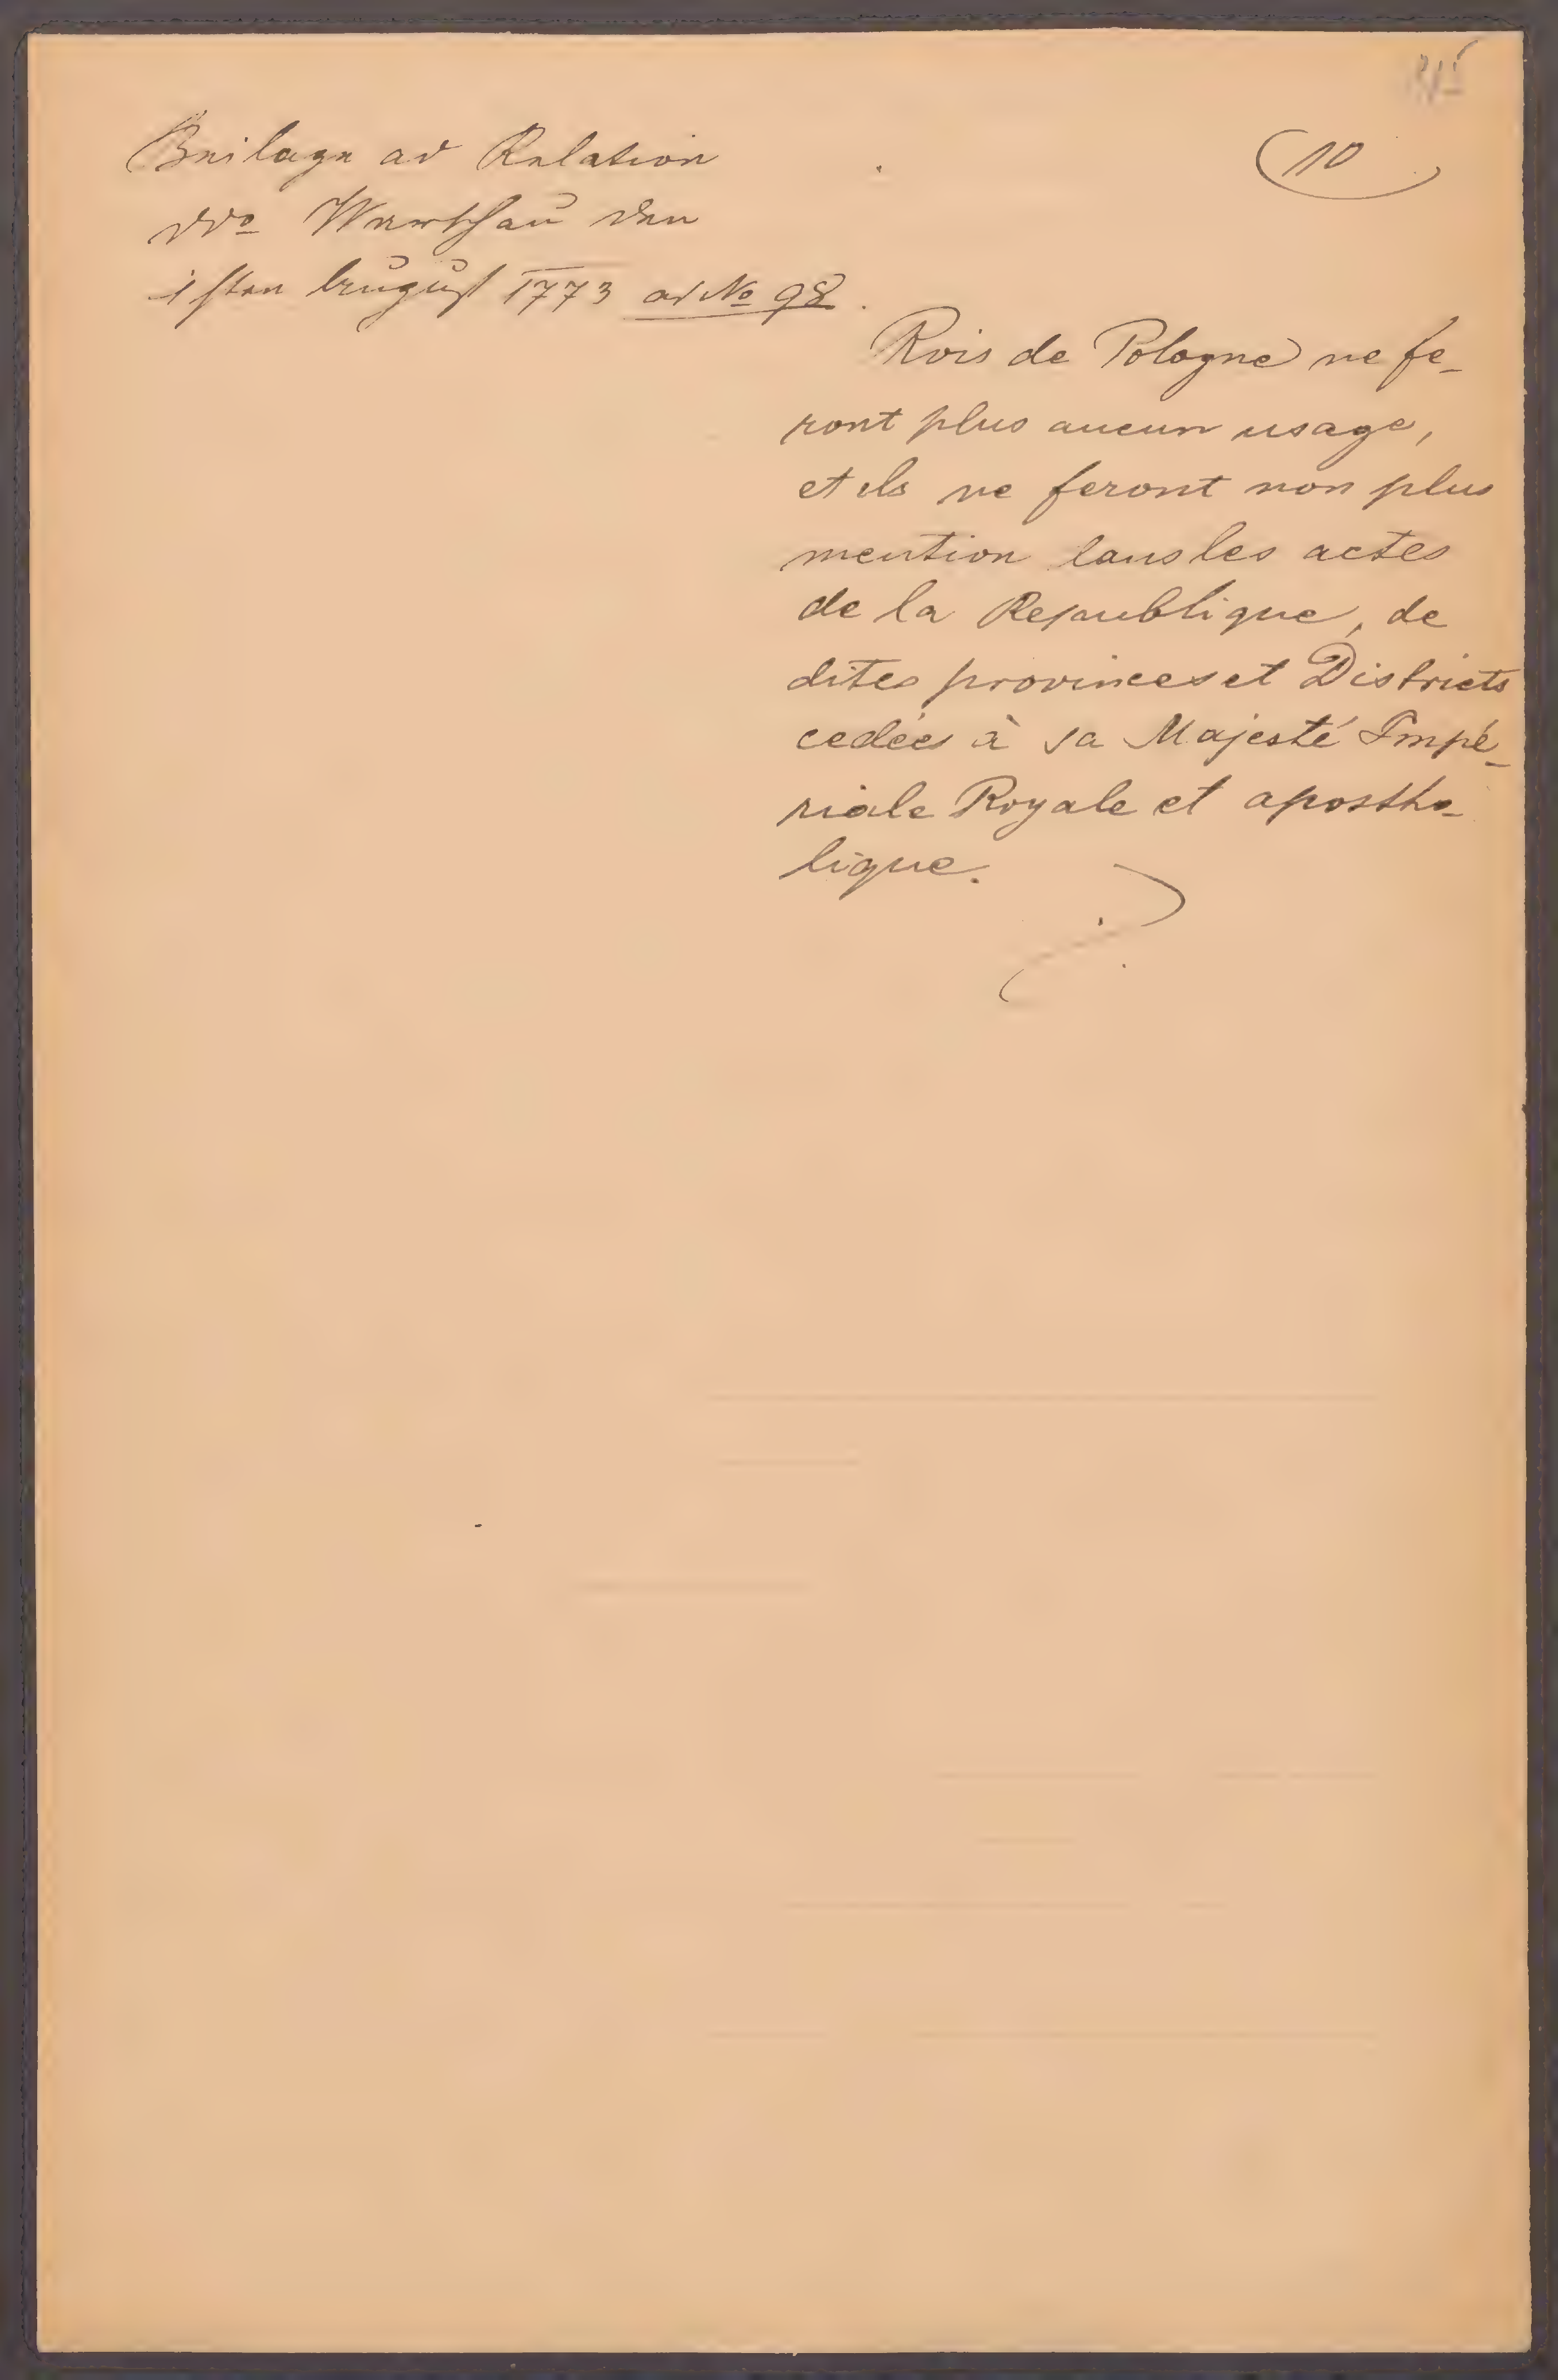 10
Beilage ad Relation
ddo Warschau den
1sten August 1773 ad No 98.
Rois de Pologne ne fe-
ront plus aucun usage,
et ils ne feront non plus
mention dans les actes
de la Republique, de
dites provinces et Districts
cedées à sa Majesté Impé-
riale Royale et apostho-
lique.